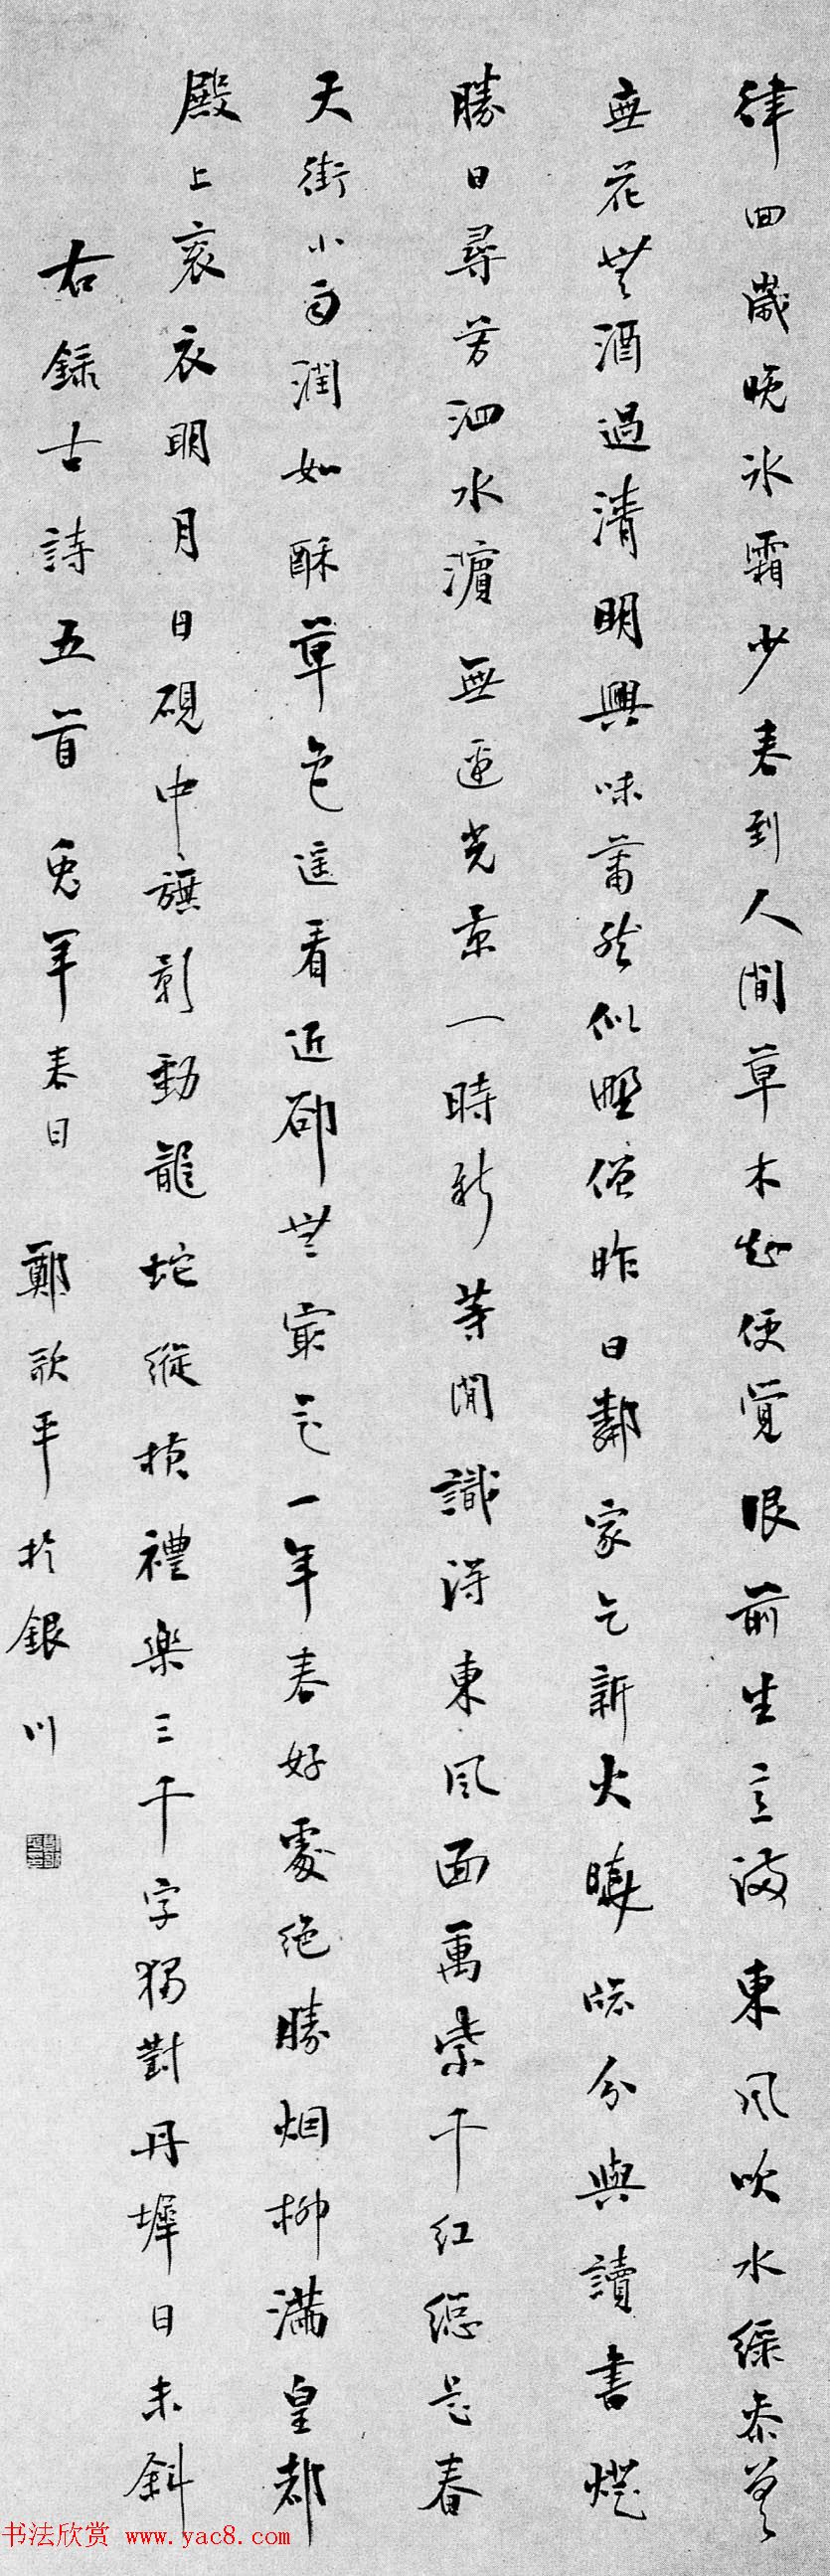 律回歲晚冰霜少春到人間草木知便覺眼前生意滿東風吹水綠參差
無花無酒過清明興味蕭然似野僧昨日鄰家乞新火曉牕分與讀書燈
勝日尋芳泗水濱無邊光景一時新等閒識得東風面萬紫千紅總是春
天街小雨潤如酥草色遥看近卻無最是一年春好處絕勝烟柳滿皇都
殿上衮衣明月日硯中旗影動龍蛇縱横禮樂三千字獨對丹墀日未斜
右録古詩五首 兔年春日 鄭歌平於銀川
书法欣赏 www.yac8.com